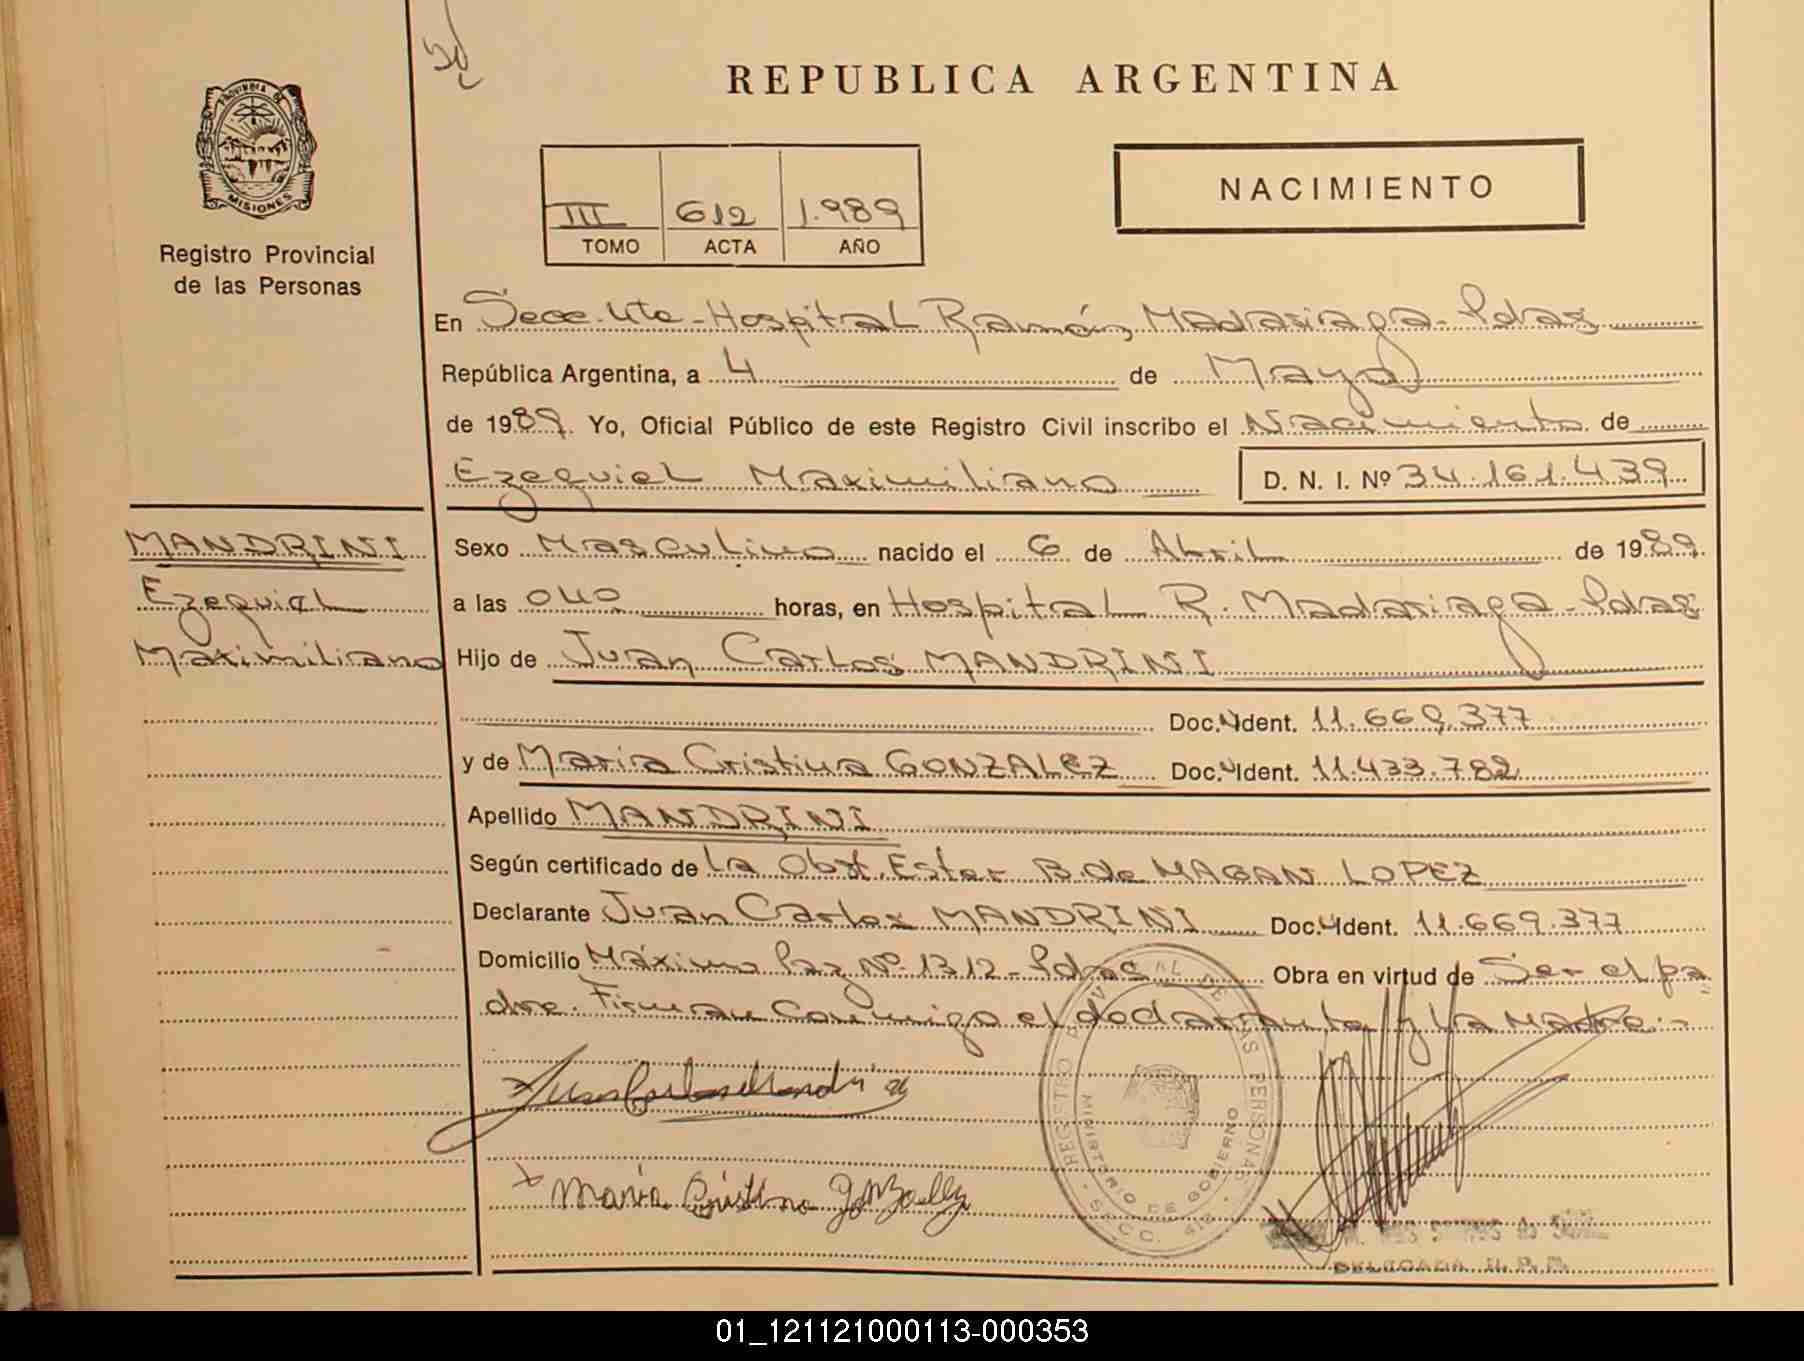 REPUBLICA ARGENTINA
PROVINCIA DE
MISIONES
Registro Provincial
de las Personas
III 612 1.989
TOMO ACTA AÑO
NACIMIENTO
En Secc. 4ta - Hospital Ramón Madariaga - Pdas
República Argentina, a 4 de Mayo
de 1989. Yo, Oficial Público de este Registro Civil inscribo el Nacimiento de
Ezequiel Maximiliano D. N. I. Nº 34.161.439
MANDRINI
Ezequiel
Maximiliano
Sexo Masculino nacido el 6 de Abril de 1989.
a las 040 horas, en Hospital R. Madariaga - Pdas
Hijo de Juan Carlos MANDRINI
Doc. Ident. 11.669.377
y de Maria Cristina GONZALEZ Doc. Ident. 11.433.782
Apellido MANDRINI
Según certificado de La Obst. Ester B. de MAGAN LOPEZ
Declarante Juan Carlos MANDRINI Doc. Ident. 11.669.377
Domicilio Máximo Paz Nº 1312 - Pdas Obra en virtud de Ser el pa
dre. Firman conmigo el declarante y la madre.-
Juan Carlos Mandrini
Maria Cristina Gonzalez
REGISTRO PROVINCIAL DE LAS PERSONAS
MINISTERIO DE GOBIERNO
SECC. 4ta
DELEGADA R. P. P.
01_121121000113-000353